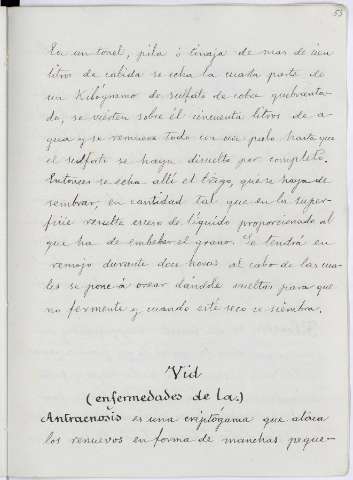 53
En un tonel, pila ó tinaja de mas de cien
litros de cabida se echa la cuarta parte de
un Kilógramo de sulfato de cobre quebranta-
do, se vierten sobre él cincuenta litros de a-
gua y se remueve todo con un palo hasta que
el sulfato se haya disuelto por completo.
Entonces se echa allí el trigo, que se haya de
sembrar, en cantidad tal que en la super-
ficie resulte exceso de líquido proporcionado al
que ha de embeber el grano. Se tendrá en
remojo durante doce horas al cabo de las cua-
les se pone á orear dándole vueltas para que
no fermente y cuando esté seco se siembra.
Vid
(enfermedades de la.)
Antracnosis es una criptógama que ataca
los renuevos en forma de manchas peque-